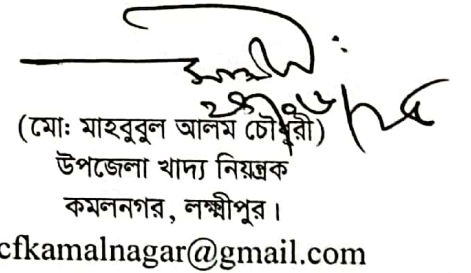 (মো: মাহবুবুল আলম চৌধুরী)
উপজেলা খাদ্য নিয়ন্ত্রক
কমলনগর, লক্ষ্মীপুর।
cfkamalnagar@gmail.com